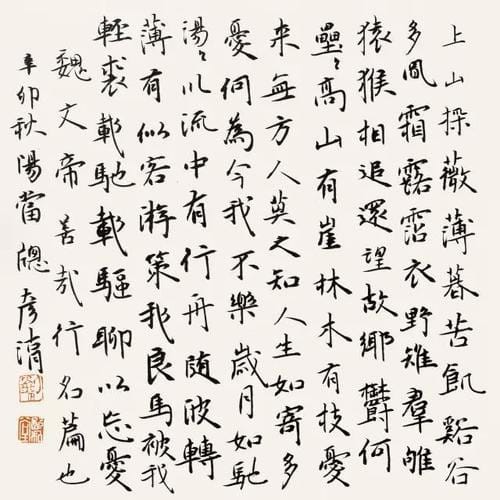 上山採薇薄暮苦飢谿谷
多風霜露霑衣野雉羣雊
猿猴相追還望故鄉鬱何
壘〻高山有崖林木有枝憂
来無方人莫之知人生如寄多
憂何為今我不樂歲月如馳
湯〻川流中有行舟随波轉
薄有似客游策我良馬被我
輕裘載馳載驅聊以忘憂
魏文帝善哉行名篇也
辛卯秋陽當牕彦